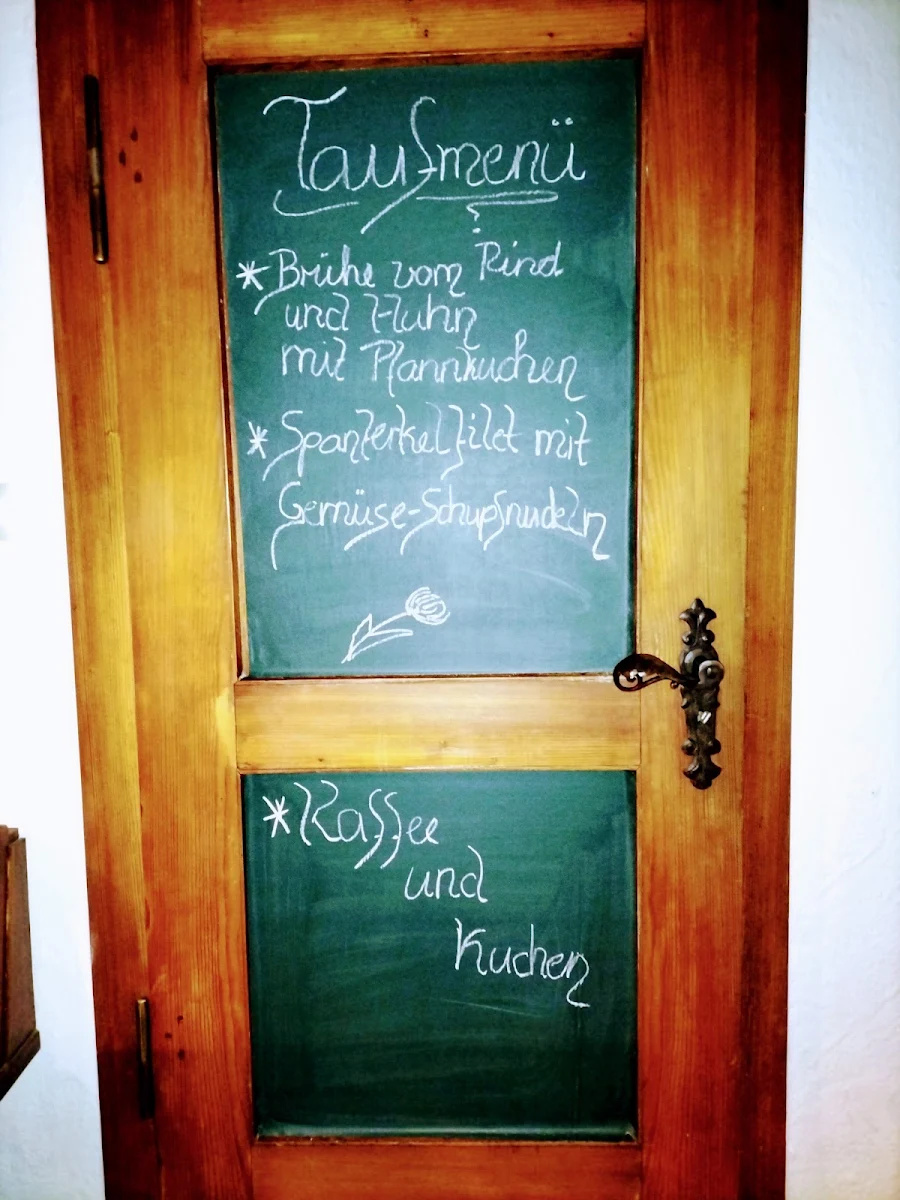 Taufmenü
* Brühe vom Rind
und Huhn
mit Pfannkuchen
* Spanferkelfilet mit
Gemüse-Schupfnudeln
* Kaffee
und
Kuchen